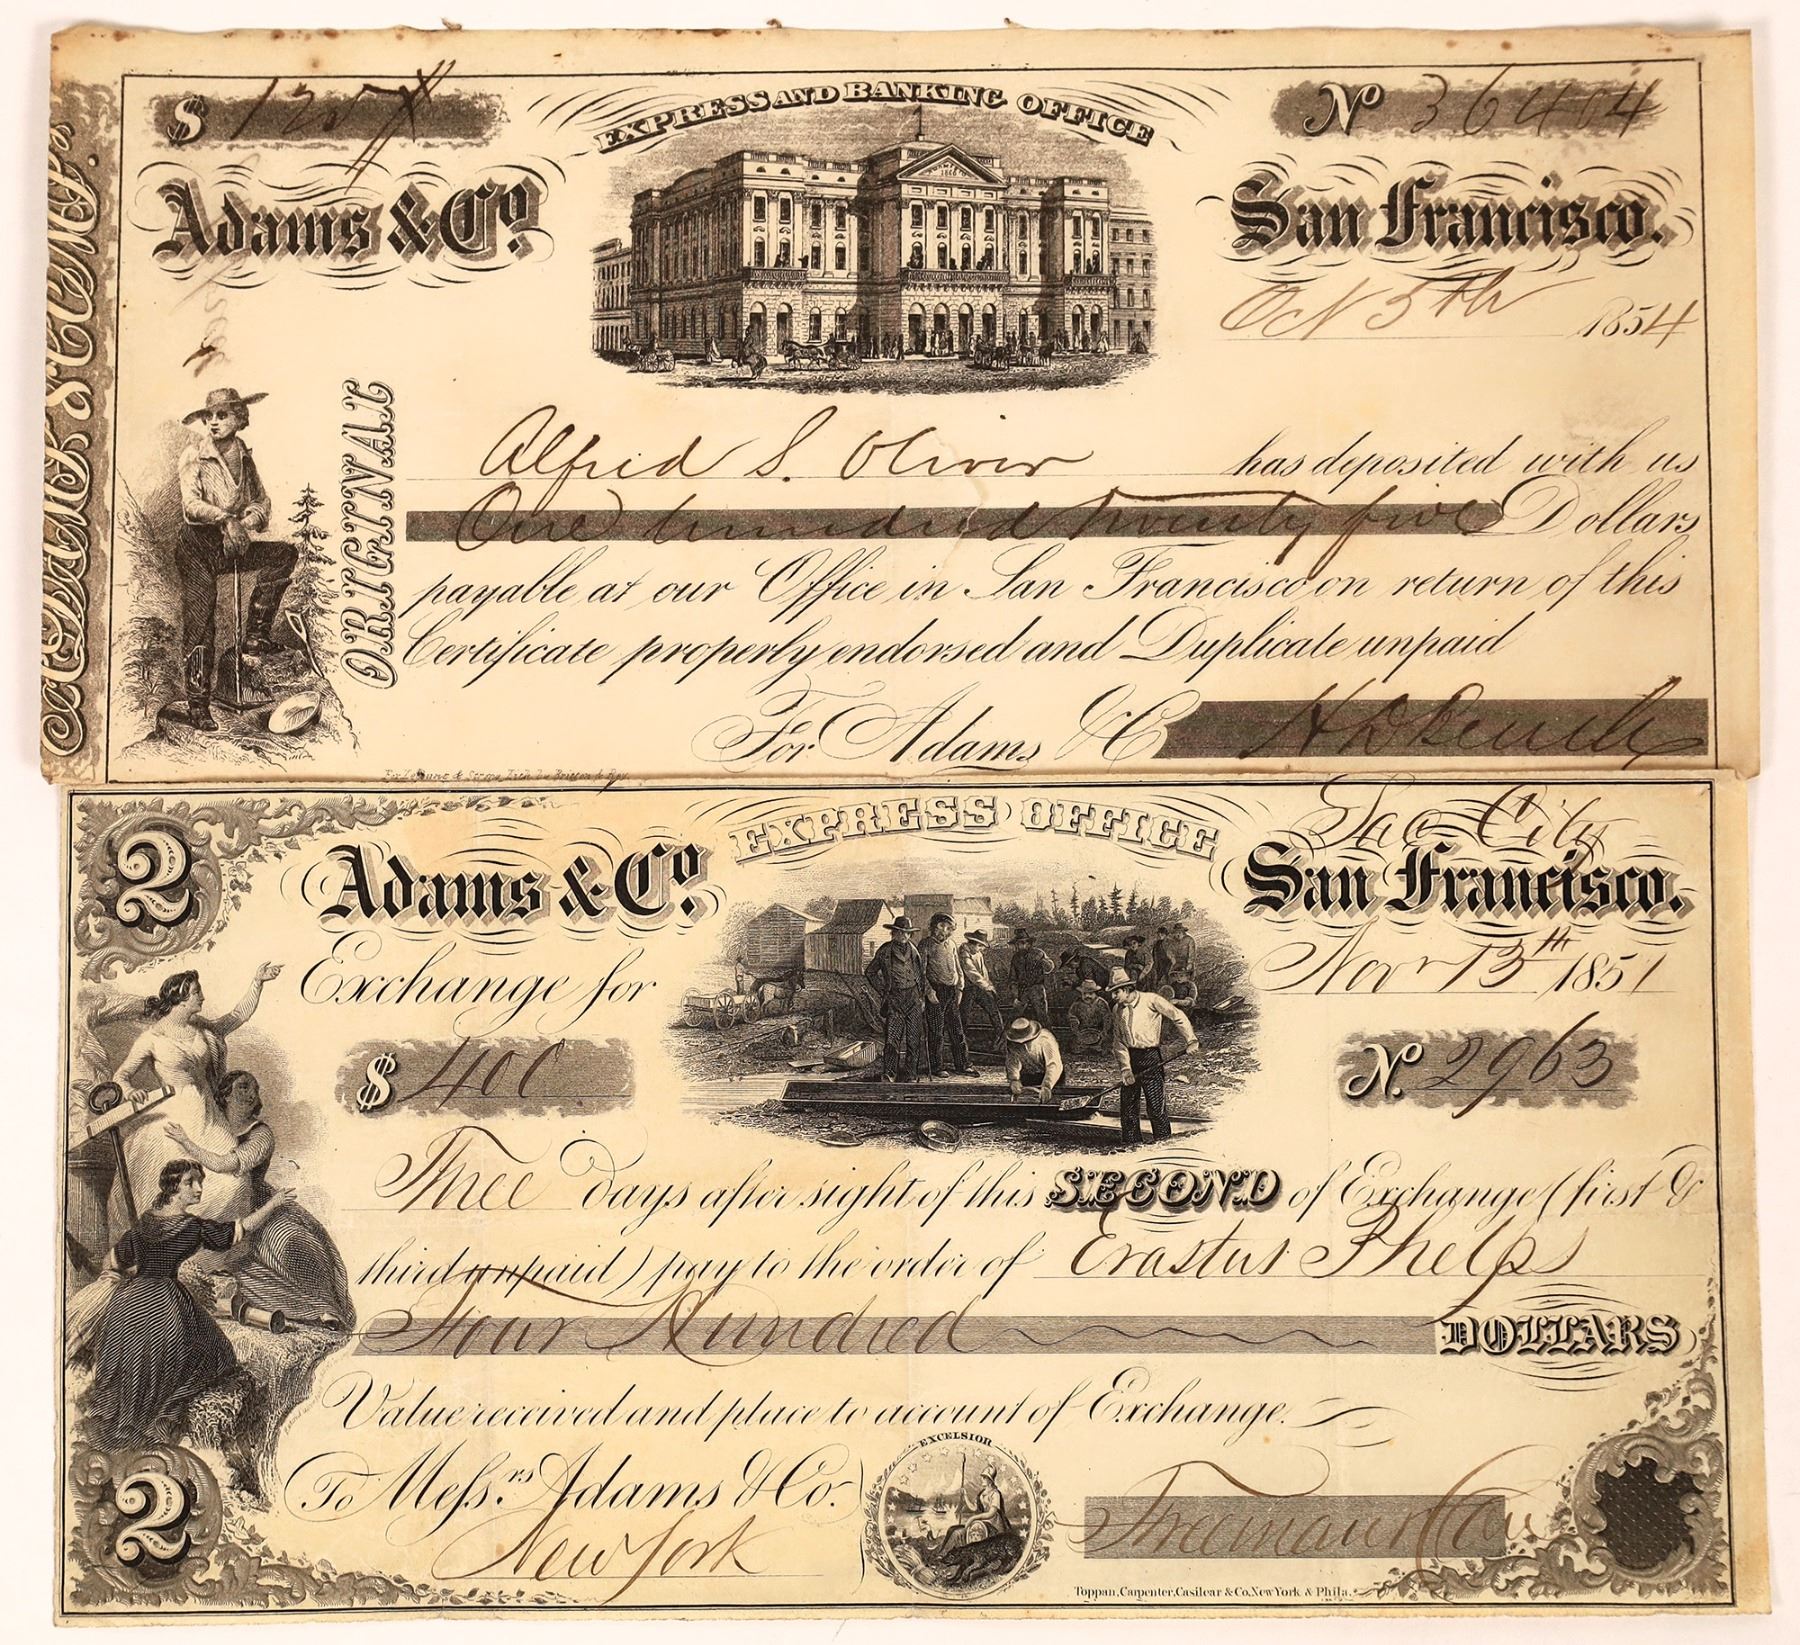 ADAMS & COMP.Y
$ 125
EXPRESS AND BANKING OFFICE
No 36404
Adams & Co.
San Francisco.
Oct 5th 1854
ORIGINAL
Alfred S. Oliver has deposited with us
One hundred twenty five Dollars
payable at our Office in San Francisco on return of this
Certificate properly endorsed and Duplicate unpaid
For Adams & Co
2
EXPRESS OFFICE
Sac City
Adams & Co.
San Francisco.
Exchange for
Novr 13th 1851
$ 400
No. 2963
Three days after sight of this SECOND of Exchange (first &
third unpaid) pay to the order of Erastus Phelps
Four Hundred DOLLARS
Value received and place to account of Exchange.
EXCELSIOR
To Messrs. Adams & Co.
New York
Freeman & Co
2
Toppan, Carpenter, Casilear & Co. New York & Phila.